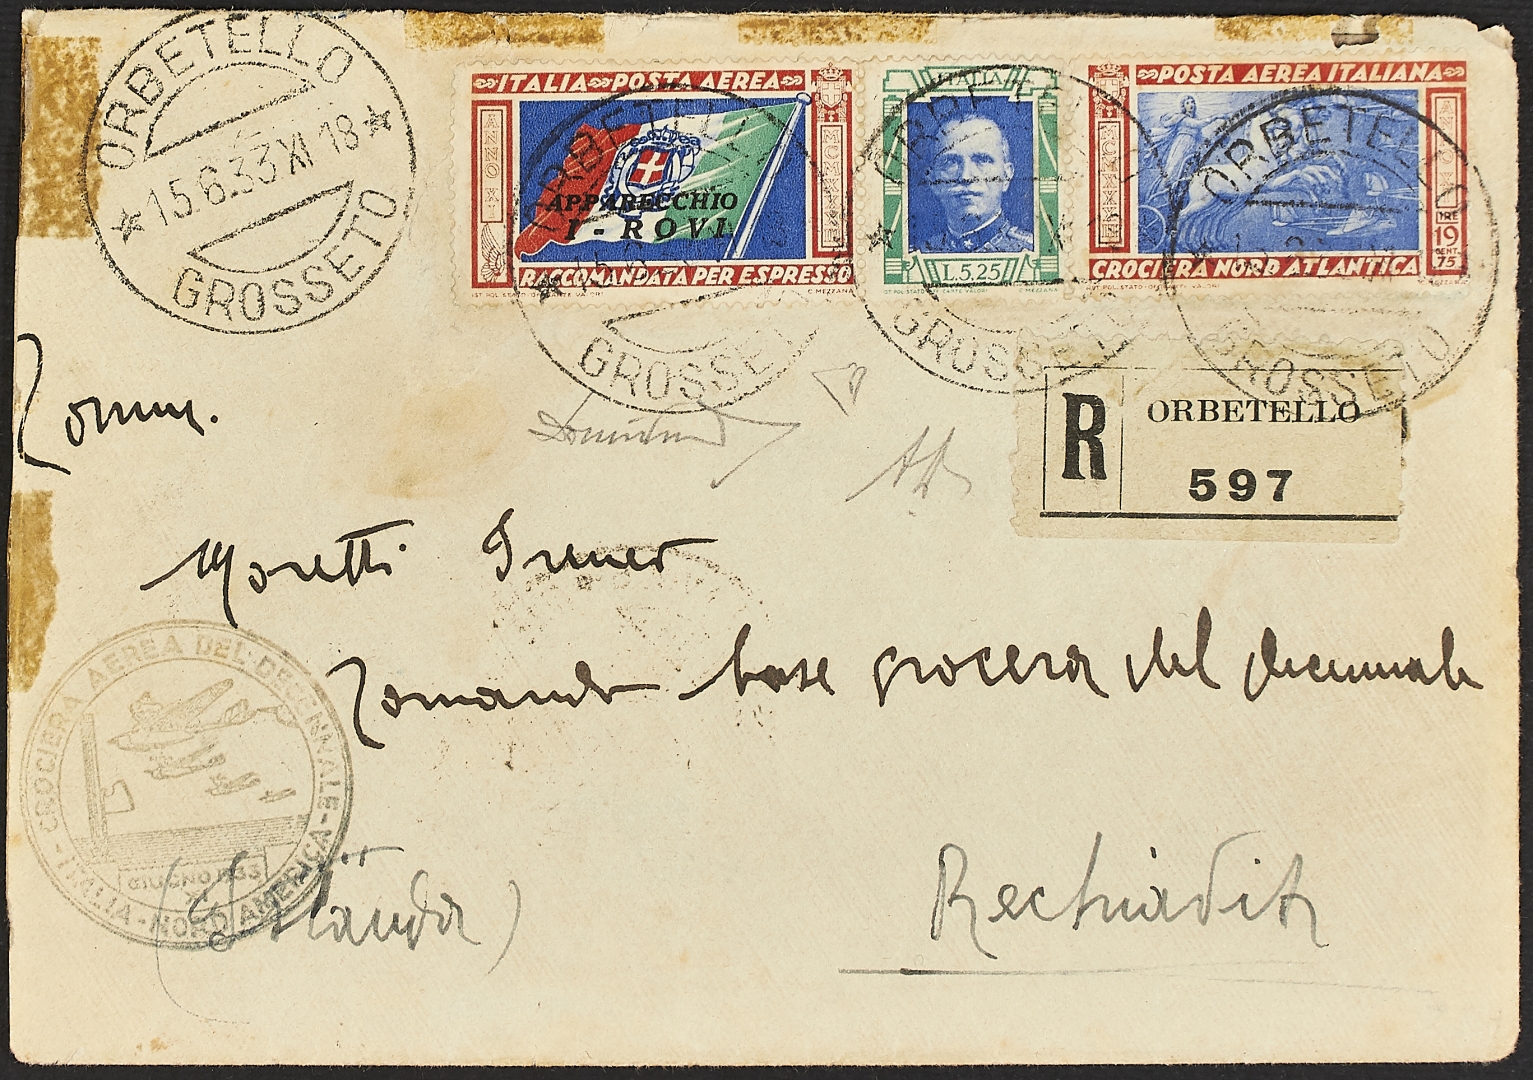 ORBETELLO
15.6.33 XI 18
GROSSETO
ITALIA POSTA AEREA
ANNO XI
MCMXXXIII
APPARECCHIO
I - ROVI
RACCOMANDATA PER ESPRESSO
IST. POL. STATO - OFF. CARTE VALORI C. MEZZANA
ITALIA
L.5.25
POSTA AEREA ITALIANA
MCMXXXIII
ANNO XI
LIRE 19 CENT. 75
CROCIERA NORD ATLANTICA
IST. POL. STATO - OFF. CARTE VALORI C. MEZZANA
ORBETELLO
GROSSETO
ORBETELLO
GROSSETO
ORBETELLO
GROSSETO
R ORBETELLO
597
Moretti Ireneo
Comando base crociera del decennale
CROCIERA AEREA DEL DECENNALE
GIUGNO 1933
ITALIA - NORD AMERICA
(Islanda)